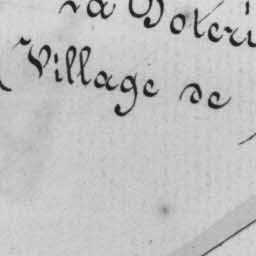 la Poteri
(Village de